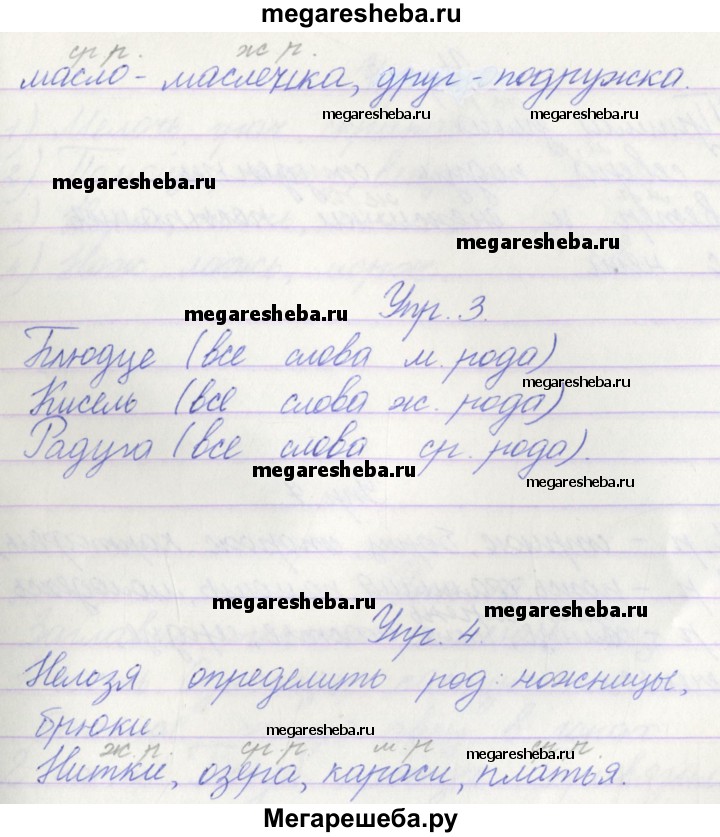 megaresheba.ru
ср р. ж р.
масло - маслечка, друг - подружка.
megaresheba.ru
megaresheba.ru
megaresheba.ru
megaresheba.ru
Упр. 3.
Блюдце (все слова м. рода)
megaresheba.ru
Кисель (все слова ж. рода)
Радуга (все слова ср. рода).
megaresheba.ru
megaresheba.ru
megaresheba.ru
megaresheba.ru
Упр. 4.
Нелозя определить род: ножницы,
брюки.
megaresheba.ru
ж. р. ср. р м. р ср. р.
megaresheba.ru
Нитки, озёра, караси, платья.
Мегарешеба.ру